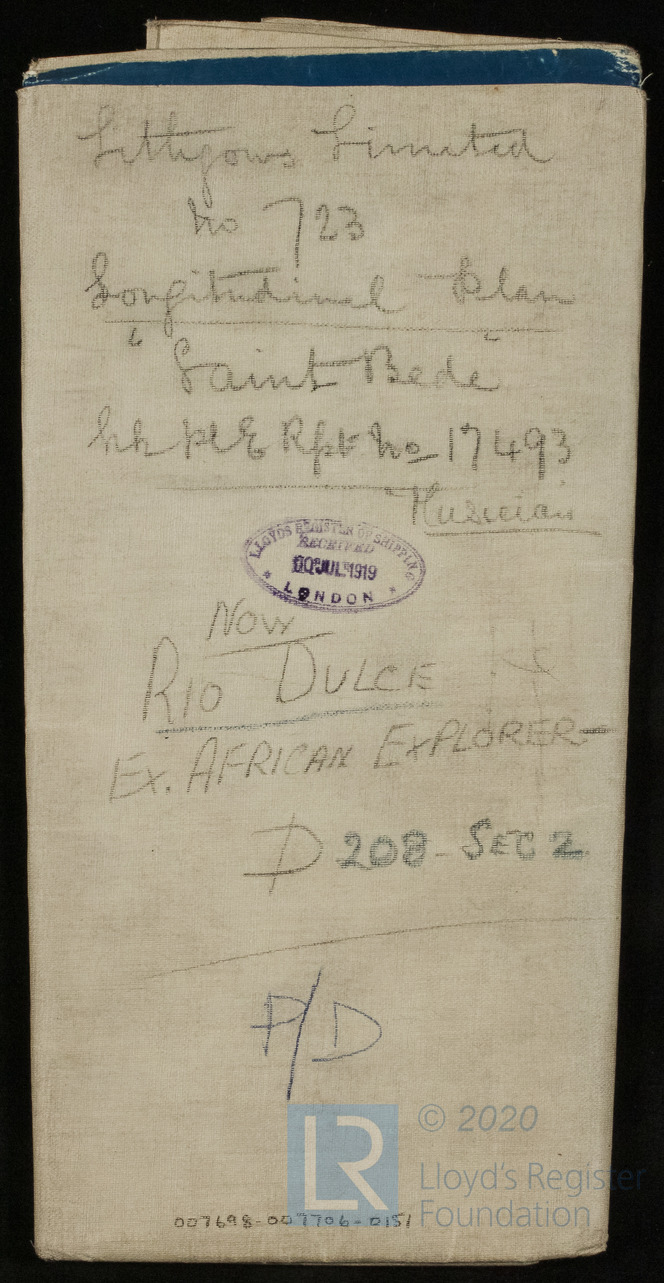 Lithgows Limited
No 723
Longitudinal Plan
"Saint Bede"
Rpt No 17493
Musician
LLOYDS REGISTER OF SHIPPING
RECEIVED
JUL. 1919
LONDON
NOW
RIO DULCE
EX. AFRICAN EXPLORER
D 208 - SEC 2
P/D
LR
© 2020
Lloyd's Register
Foundation
007698-007706-0151